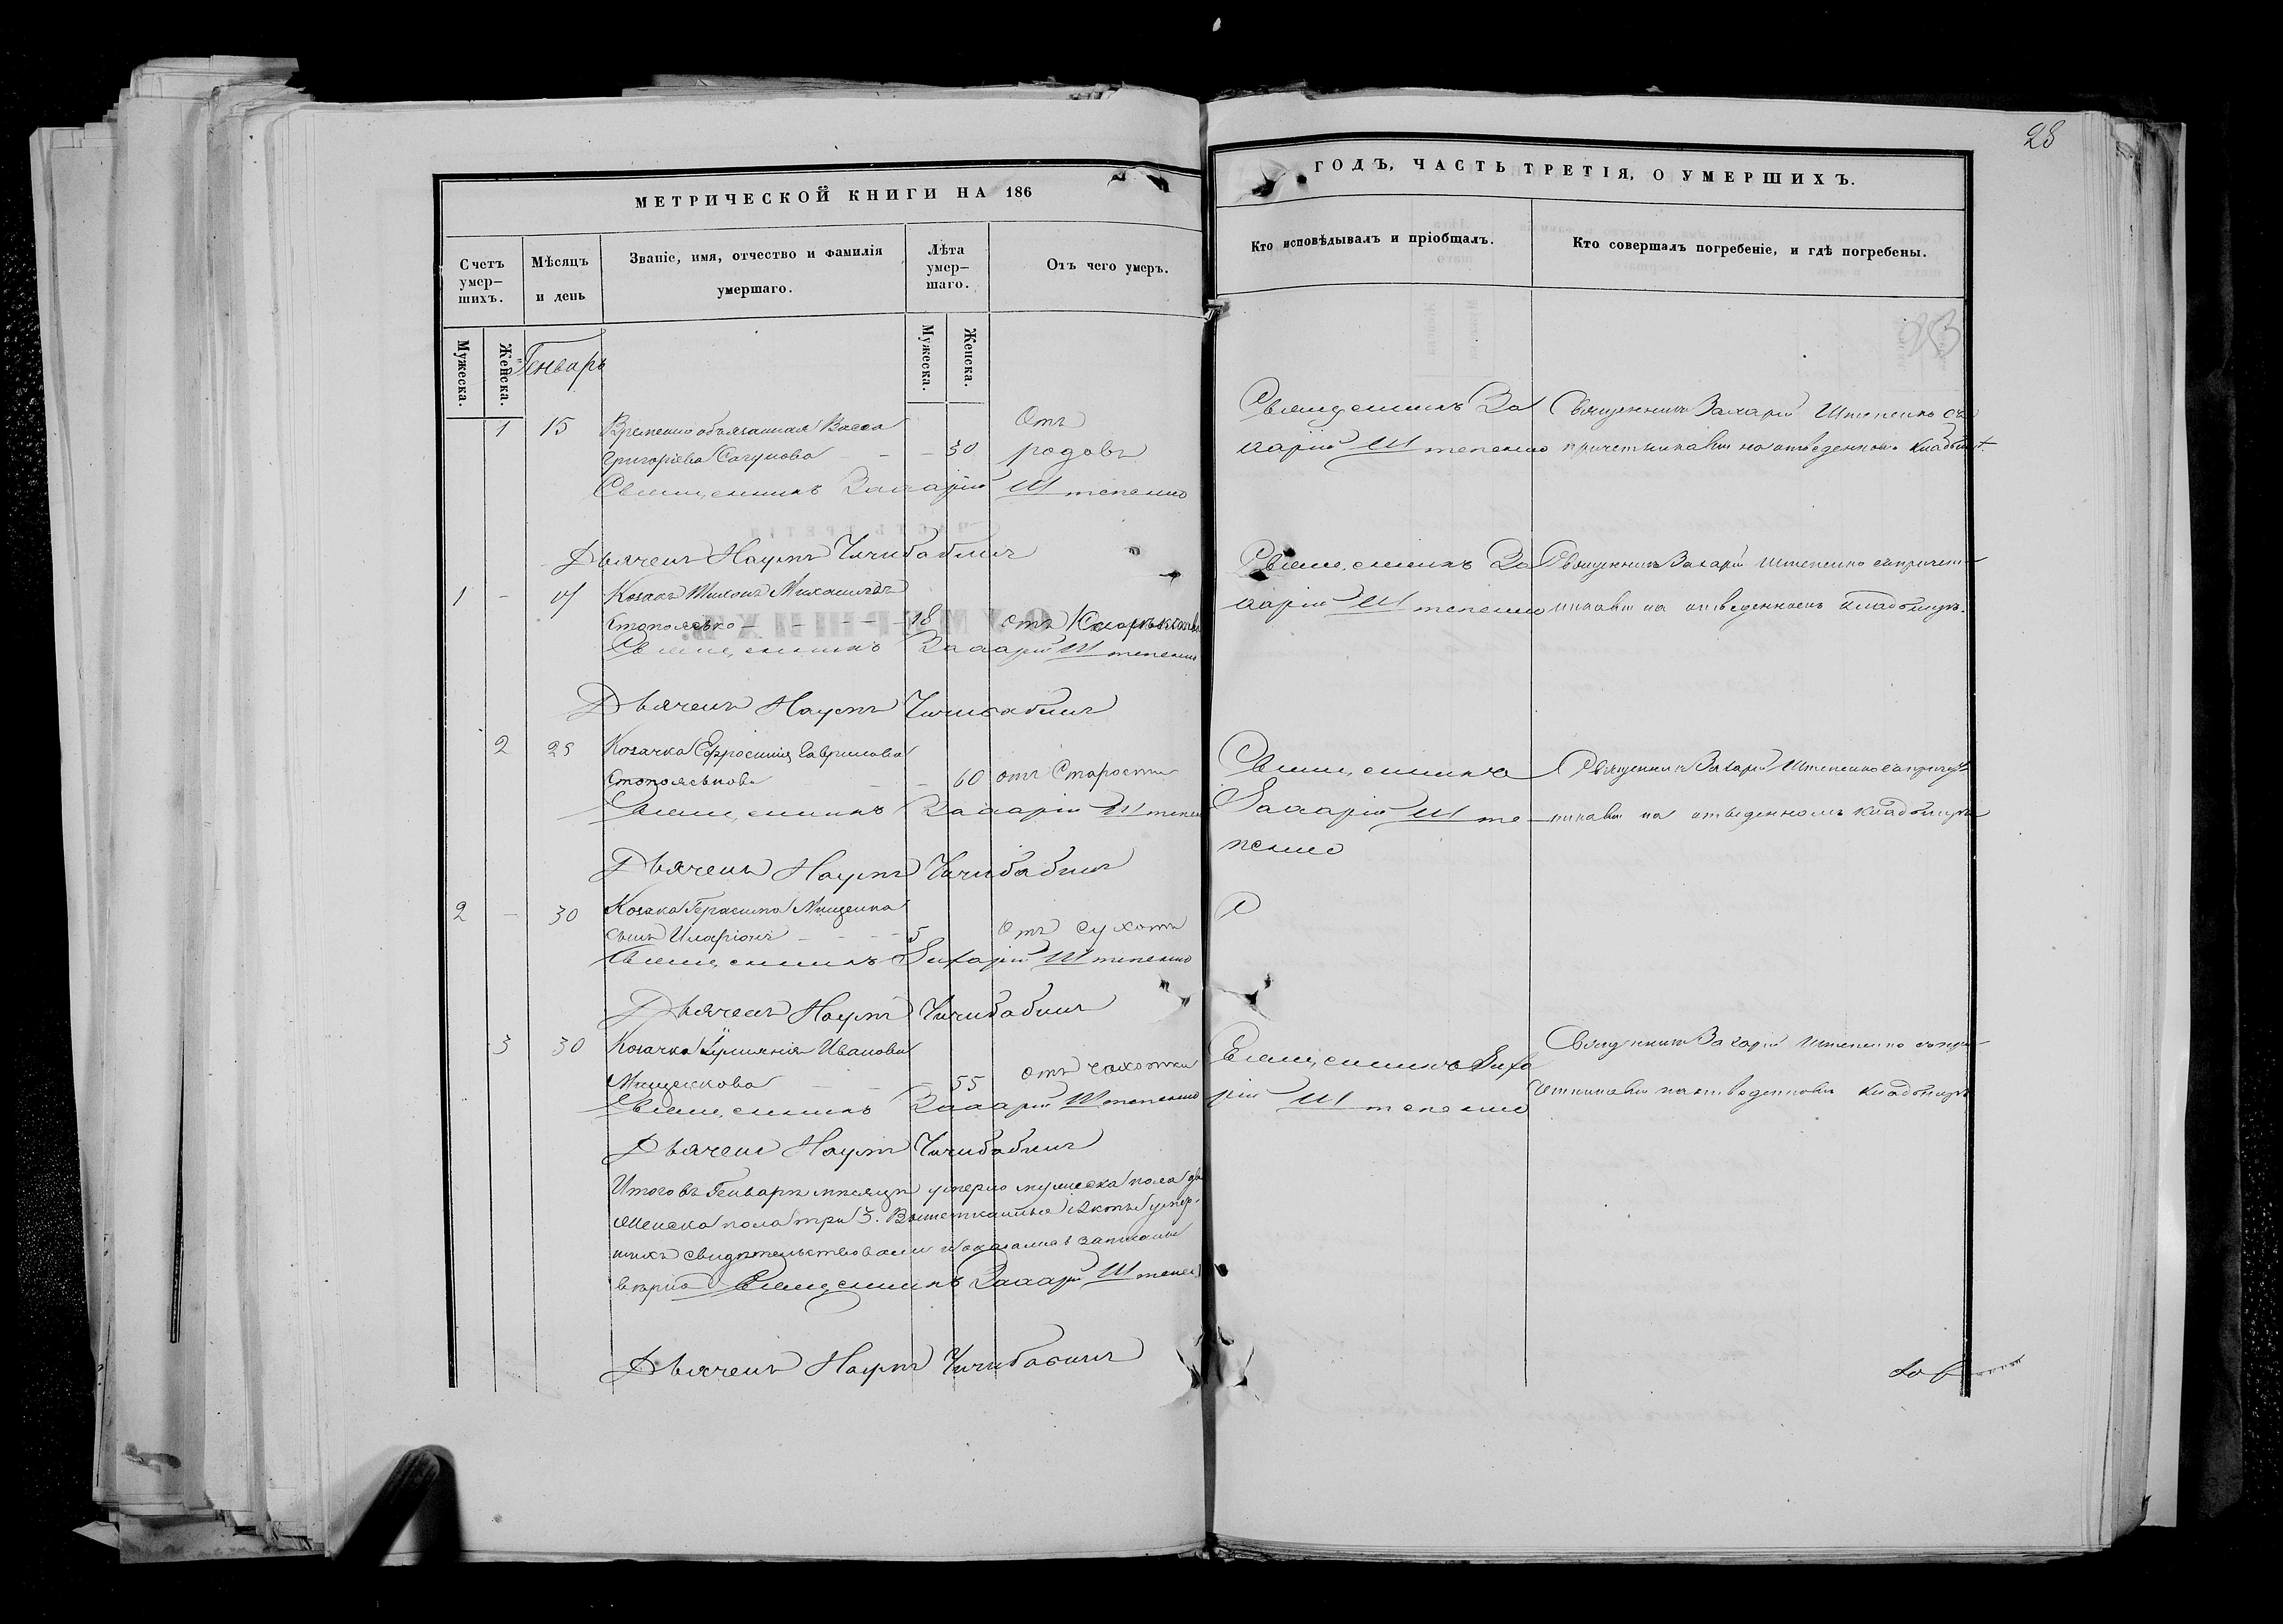 28
МЕТРИЧЕСКОЙ КНИГИ НА 186
ГОДЪ, ЧАСТЬ ТРЕТІЯ, О УМЕРШИХЪ.
Счетъ умер-шихъ.
Мѣсяцъ и день
Званіе, имя, отчество и фамилія
умершаго.
Лѣта умер-шаго.
Отъ чего умеръ.
Кто исповѣдывалъ и пріобщалъ.
Кто совершалъ погребеніе, и гдѣ погребены.
Мужеска.
Женска.
Мужеска.
Женска.
Генварь
1 15 Временно обязанная Васса Отъ
Григорьева 30 родовъ
Священникъ Захарій Штепенко
Дьячекъ Наумъ Чичибабинъ
Священникъ За
харій Штепенко
Священникъ Захарій Штепенко съ
причетниками на отведенномъ кладбищѣ
1 - Козакъ Тихонъ
18 отъ
Священникъ Захарій Штепенко
Дьячекъ Наумъ Чичибабинъ
Священникъ За
харій Штепенко
Священникъ Захарій Штепенко съ причет-
никами на отведенномъ кладбищѣ.
2 25 Козачка Евфросинія Гаврилова
60 отъ Старости
Священникъ Захарій Штепен
Дьячекъ Наумъ Чичибабинъ
Священникъ
Захарій Ште
пенко
Священникъ Захарій Штепенко съ причет
никами на отведенномъ кладбищѣ
2 - 30 Козака Герасима Мищенка
сынъ Иларіонъ 5 Отъ сухотъ
Священникъ Захарій Штепенко
Дьячекъ Наумъ Чичибабинъ
3 30 Козачка Іуліянія Иванова
Мищенкова 55 отъ чахотки
Священникъ Захарій Штепенко
Дьячекъ Наумъ Чичибабинъ
Священникъ Заха
рій Штепенко
Священникъ Захарій Штепенко съ при
четниками на отведенномъ кладбищѣ
Итого въ Генварѣ мѣсяцѣ умерло мужеска пола
женска пола три 3. акты умер-
шихъ свидѣтельствовали и оказались записаны
вѣрно Священникъ Захарій Штепен
Дьячекъ Наумъ Чичибабинъ